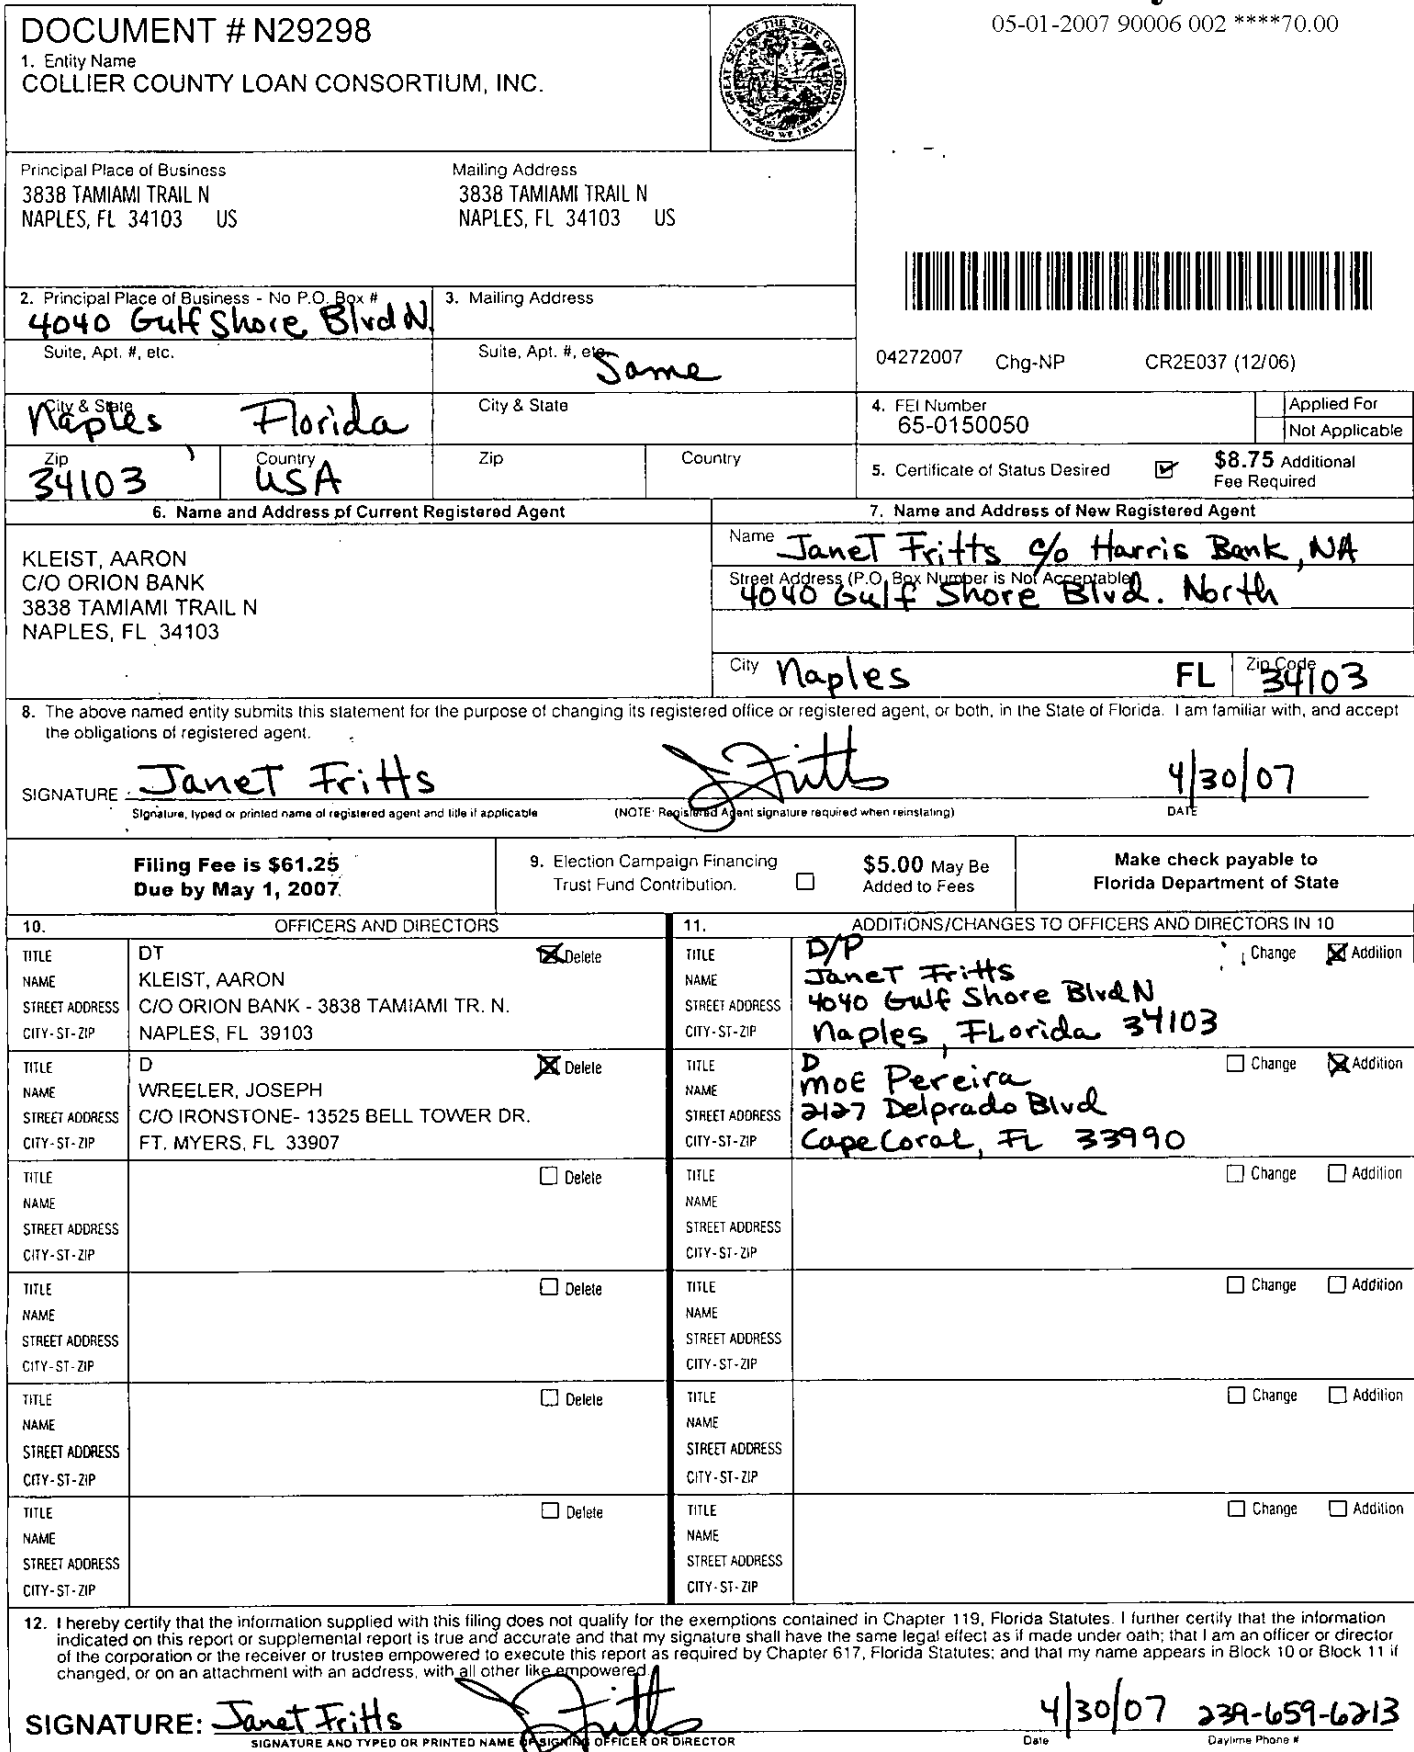 05-01-2007 90006 002 ****70.00
DOCUMENT # N29298
1. Entity Name
COLLIER COUNTY LOAN CONSORTIUM, INC.
GREAT SEAL OF THE STATE OF FLORIDA
IN GOD WE TRUST
Principal Place of Business
3838 TAMIAMI TRAIL N
NAPLES, FL 34103 US
Mailing Address
3838 TAMIAMI TRAIL N
NAPLES, FL 34103 US
2. Principal Place of Business - No P.O. Box #
4040 Gulf Shore Blvd N.
3. Mailing Address
Suite, Apt. #, etc.
Suite, Apt. #, etc.
Same
04272007 Chg-NP CR2E037 (12/06)
City & State
Naples, Florida
City & State
4. FEI Number
65-0150050
Applied For
Not Applicable
Zip
34103
Country
USA
Zip
Country
5. Certificate of Status Desired
$8.75 Additional
Fee Required
6. Name and Address of Current Registered Agent
KLEIST, AARON
C/O ORION BANK
3838 TAMIAMI TRAIL N
NAPLES, FL 34103
7. Name and Address of New Registered Agent
Name Janet Fritts c/o Harris Bank, NA
Street Address (P.O. Box Number is Not Acceptable)
4040 Gulf Shore Blvd. North
City Naples FL Zip Code 34103
8. The above named entity submits this statement for the purpose of changing its registered office or registered agent, or both, in the State of Florida. I am familiar with, and accept
the obligations of registered agent.
SIGNATURE Janet Fritts J Fritts 4/30/07
Signature, typed or printed name of registered agent and title if applicable (NOTE: Registered Agent signature required when reinstating) DATE
Filing Fee is $61.25
Due by May 1, 2007
9. Election Campaign Financing
Trust Fund Contribution.
$5.00 May Be
Added to Fees
Make check payable to
Florida Department of State
10. OFFICERS AND DIRECTORS
TITLE DT Delete
NAME KLEIST, AARON
STREET ADDRESS C/O ORION BANK - 3838 TAMIAMI TR. N.
CITY-ST-ZIP NAPLES, FL 39103
TITLE D Delete
NAME WREELER, JOSEPH
STREET ADDRESS C/O IRONSTONE- 13525 BELL TOWER DR.
CITY-ST-ZIP FT. MYERS, FL 33907
TITLE Delete
NAME
STREET ADDRESS
CITY-ST-ZIP
TITLE Delete
NAME
STREET ADDRESS
CITY-ST-ZIP
TITLE Delete
NAME
STREET ADDRESS
CITY-ST-ZIP
TITLE Delete
NAME
STREET ADDRESS
CITY-ST-ZIP
11. ADDITIONS/CHANGES TO OFFICERS AND DIRECTORS IN 10
TITLE D/P Change Addition
NAME Janet Fritts
STREET ADDRESS 4040 Gulf Shore Blvd N
CITY-ST-ZIP Naples, Florida 34103
TITLE D Change Addition
NAME MOE Pereira
STREET ADDRESS 2127 Delprado Blvd
CITY-ST-ZIP Cape Coral, FL 33990
TITLE Change Addition
NAME
STREET ADDRESS
CITY-ST-ZIP
TITLE Change Addition
NAME
STREET ADDRESS
CITY-ST-ZIP
TITLE Change Addition
NAME
STREET ADDRESS
CITY-ST-ZIP
TITLE Change Addition
NAME
STREET ADDRESS
CITY-ST-ZIP
12. I hereby certify that the information supplied with this filing does not qualify for the exemptions contained in Chapter 119, Florida Statutes. I further certify that the information
indicated on this report or supplemental report is true and accurate and that my signature shall have the same legal effect as if made under oath; that I am an officer or director
of the corporation or the receiver or trustee empowered to execute this report as required by Chapter 617, Florida Statutes; and that my name appears in Block 10 or Block 11 if
changed, or on an attachment with an address, with all other like empowered.
SIGNATURE: Janet Fritts J Fritts 4/30/07 239-659-6213
SIGNATURE AND TYPED OR PRINTED NAME OF SIGNING OFFICER OR DIRECTOR Date Daytime Phone #